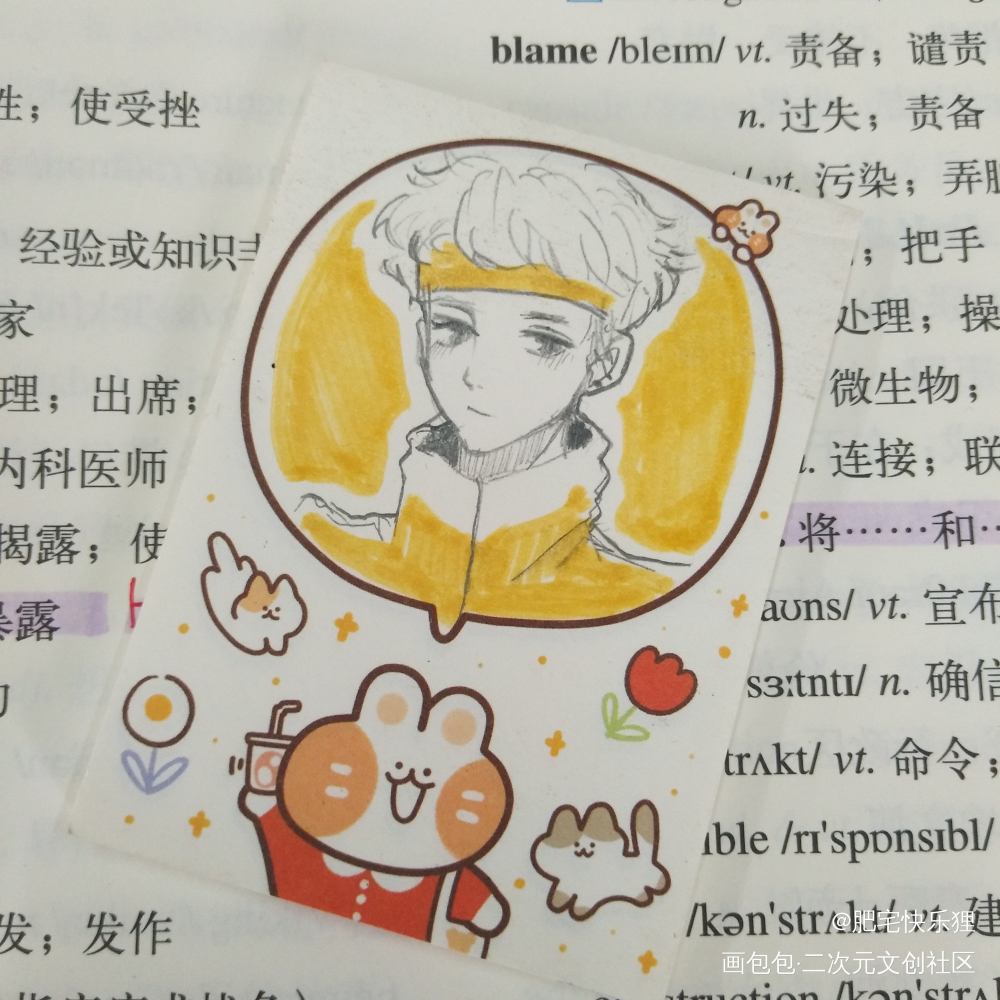 blame /bleɪm/ vt. 责备；谴责
性；使受挫
n. 过失；责备
vt. 污染；弄脏
经验或知识丰
；把手
家
处理；操
理；出席；
微生物；
内科医师
连接；联
揭露；使
将……和…
暴露
aʊns/ vt. 宣布
sɜːtntɪ/ n. 确信
trʌkt/ vt. 命令；
ible /rɪ'spɒnsɪbl/
/kən'strʌkt/ vt. 建
发；发作
@肥宅快乐狸
画包包·二次元文创社区
struction /kən'strʌ